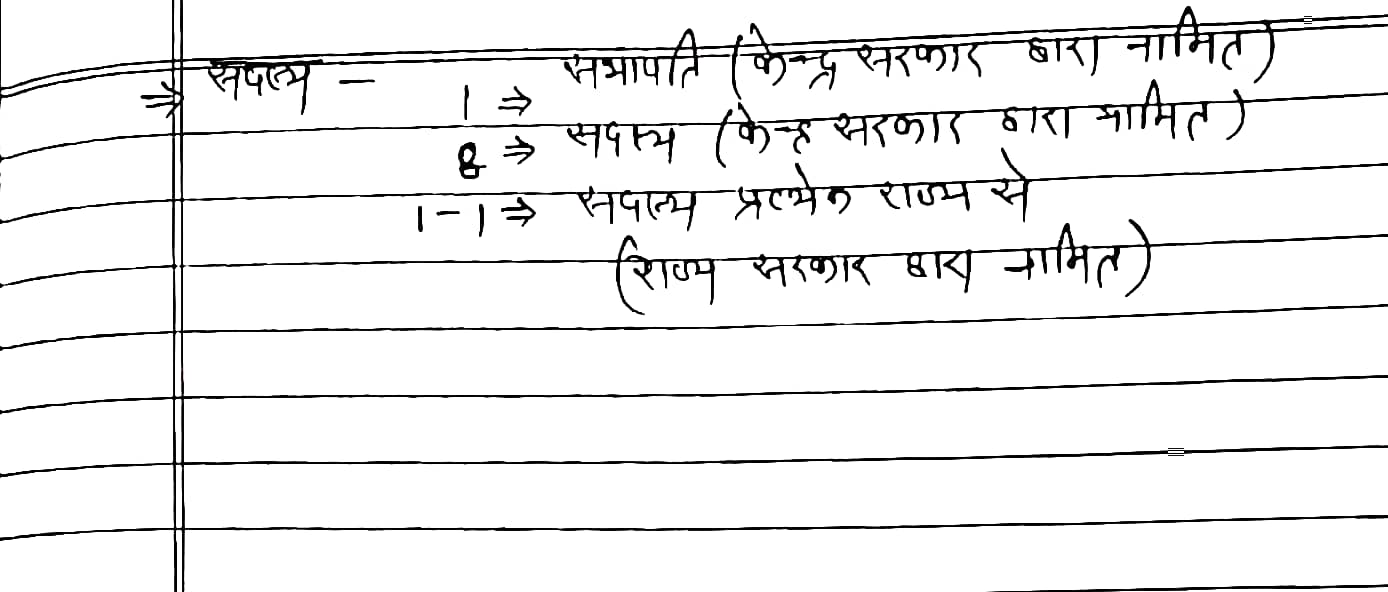 ⇒ सदस्य –
1 ⇒ सभापति (केन्द्र सरकार द्वारा नामित)
8 ⇒ सदस्य (केन्द्र सरकार द्वारा नामित)
1-1 ⇒ सदस्य प्रत्येक राज्य से
(राज्य सरकार द्वारा नामित)